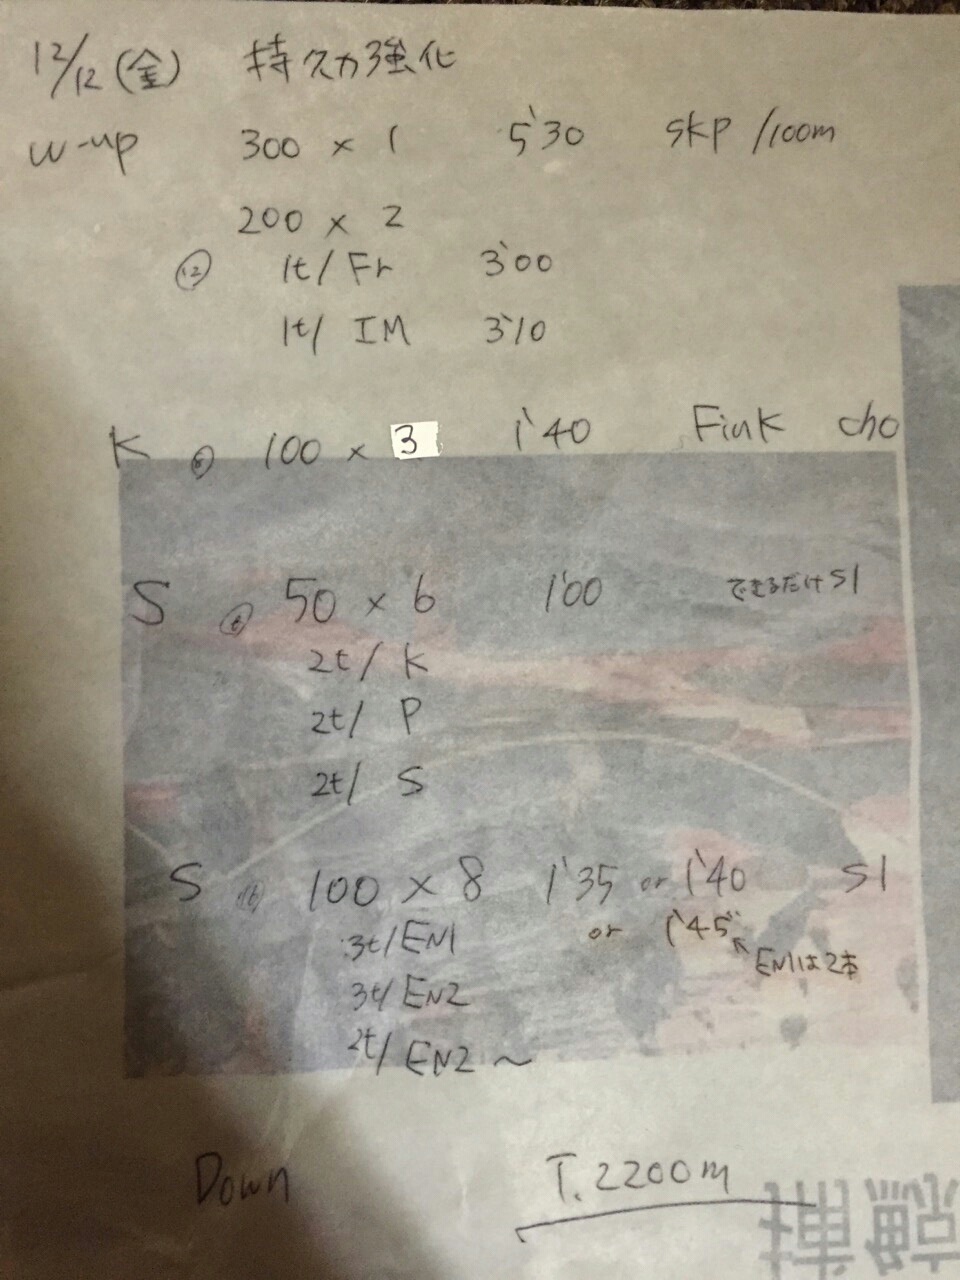 12/12(金) 持久力強化
W-up 300 × 1 5'30 SKP /100m
200 × 2
⑫ 1t/ Fr 3'00
1t/ IM 3'10
K 100 × 3 1'40 FinK cho
S ⑥ 50 × 6 1'00 できるだけS1
2t/ K
2t/ P
2t/ S
S 100 × 8 1'35 or 1'40 S1
3t/ EN1 or 1'45"
EN1は2本
3t/ EN2
2t/ EN2 ~
Down T. 2200m